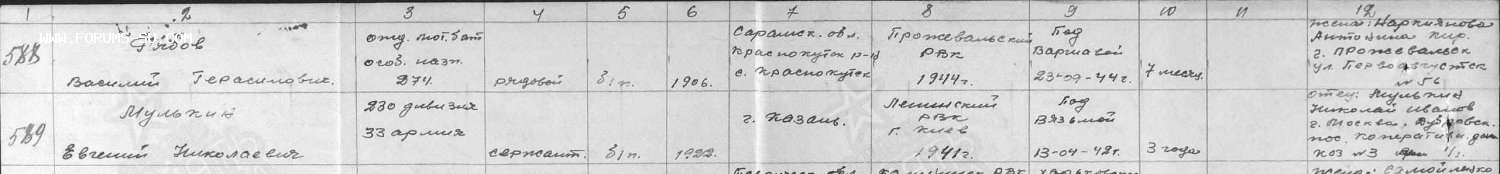 1 2 3 4 5 6 7 8 9 10 11 12
WWW.FORUMS-SU.COM
588
Рябов
Василий Герасимович.
отд. мот. бат
особ. назн.
274.
рядовой
б/п.
1906.
Саратск. обл.
Краснокутск р-н
с. Краснокутск
Пржевальский
РВК
1944г.
Под
Варшавой
23-09-44г.
7 месяц.
жена: Наркиянова
Антонина Кир.
г. Пржевальск
ул Первоавгустск
№ 56
589
Мулькин
Евгений Николаевич
230 дивизия
33 армия
сержант.
б/п.
1922.
г. Казань.
Ленинский
РВК
г. Киев
1941г.
Под
Вязьмой
13-04-42г.
3 года
отец: Мулькин
Николай Иванов
г. Москва, Дубровск.
пос. Коператив. дом
№3
Харьковск
жена: Самойленко